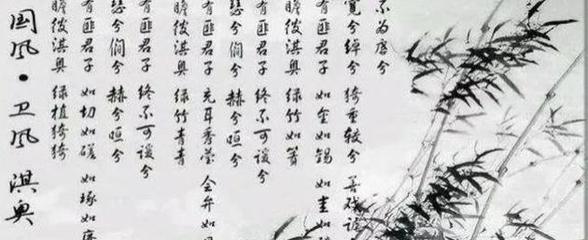 国风·卫风 淇奥
瞻彼淇奥 绿植猗猗
有匪君子 如切如磋 如琢如磨
瑟兮僩兮 赫兮咺兮
有匪君子 终不可谖兮
瞻彼淇奥 绿竹青青
有匪君子 充耳秀莹 会弁如
瑟兮僩兮 赫兮咺兮
有匪君子 终不可谖兮
瞻彼淇奥 绿竹如箐
有匪君子 如金如锡 如圭如
宽兮绰兮 猗重较兮 善戏谑
不为虐兮